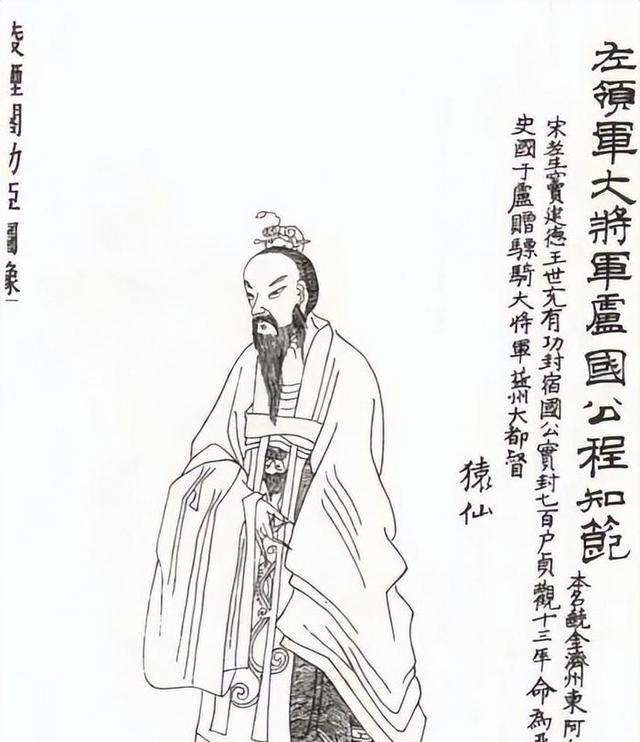 左領軍大將軍盧國公程知節
本名饒金濟州東阿
宋老生竇建德王世充有功封宿國公實封七百户貞觀十三年命為
史國于盧贈驃騎大將軍益州大都督
猿仙
凌煙閣功臣圖像